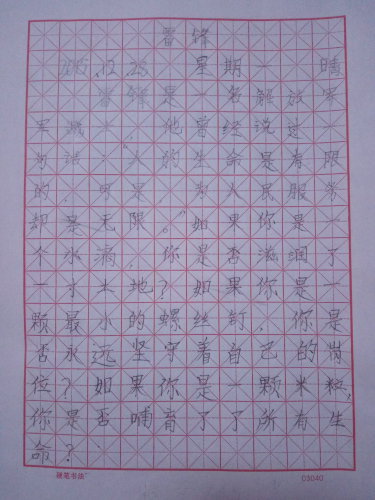 雷锋
2015.12.28 星期一 晴
雷锋是一名解放军
军战士,他曾经说过一
句话:"人的生命是有限
的,可是,为人民服务
却是无限。"如果你是一
个水滴,你是否滋润了
一寸土地?如果你是一
颗最小的螺丝钉,你是
否永远坚守着自己的岗
位?如果你是一颗米粒,
你是否哺育了了所有生
命?
硬笔书法
03040